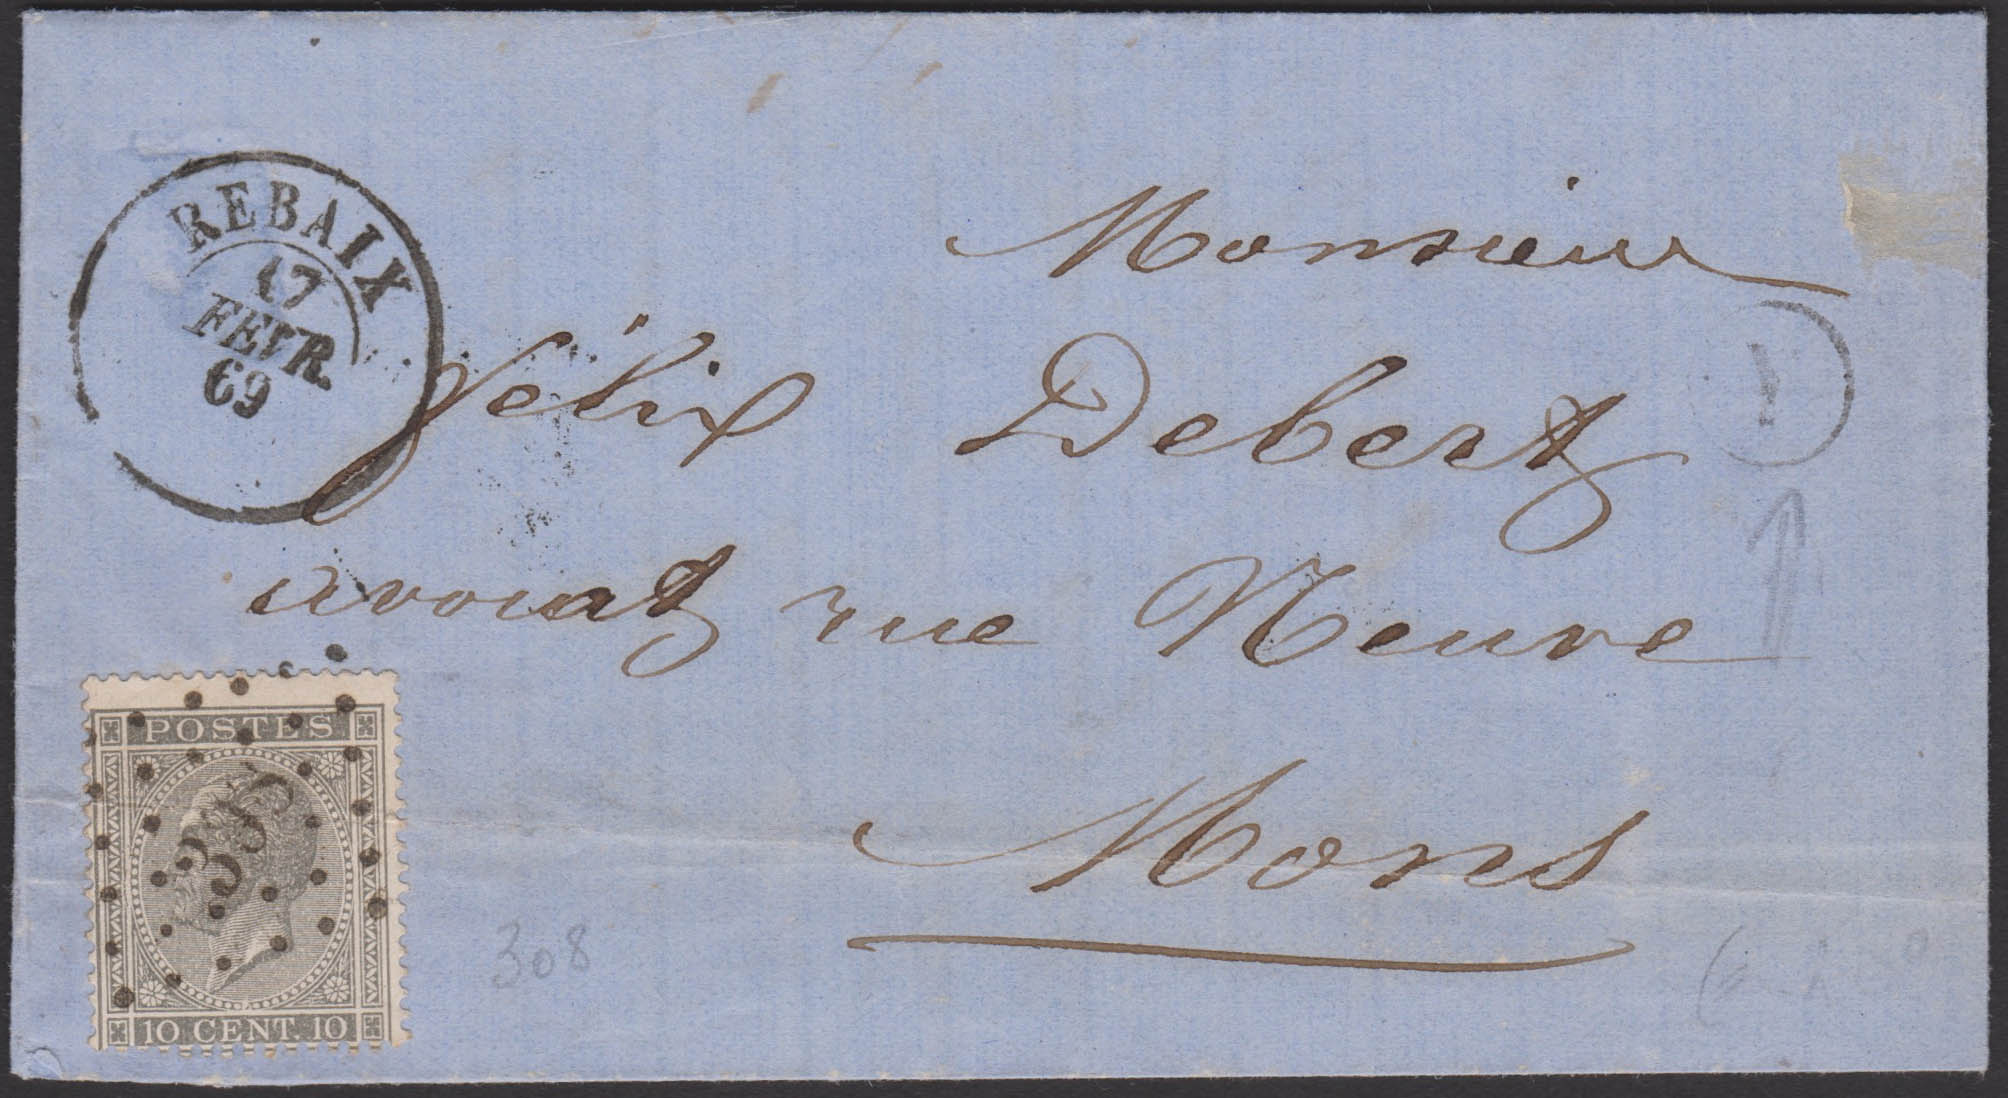 REBAIX
17
FEVR.
69
Monsieur
Félix Debert
avocat rue Neuve
Mons
1
POSTES
308
10 CENT. 10
308